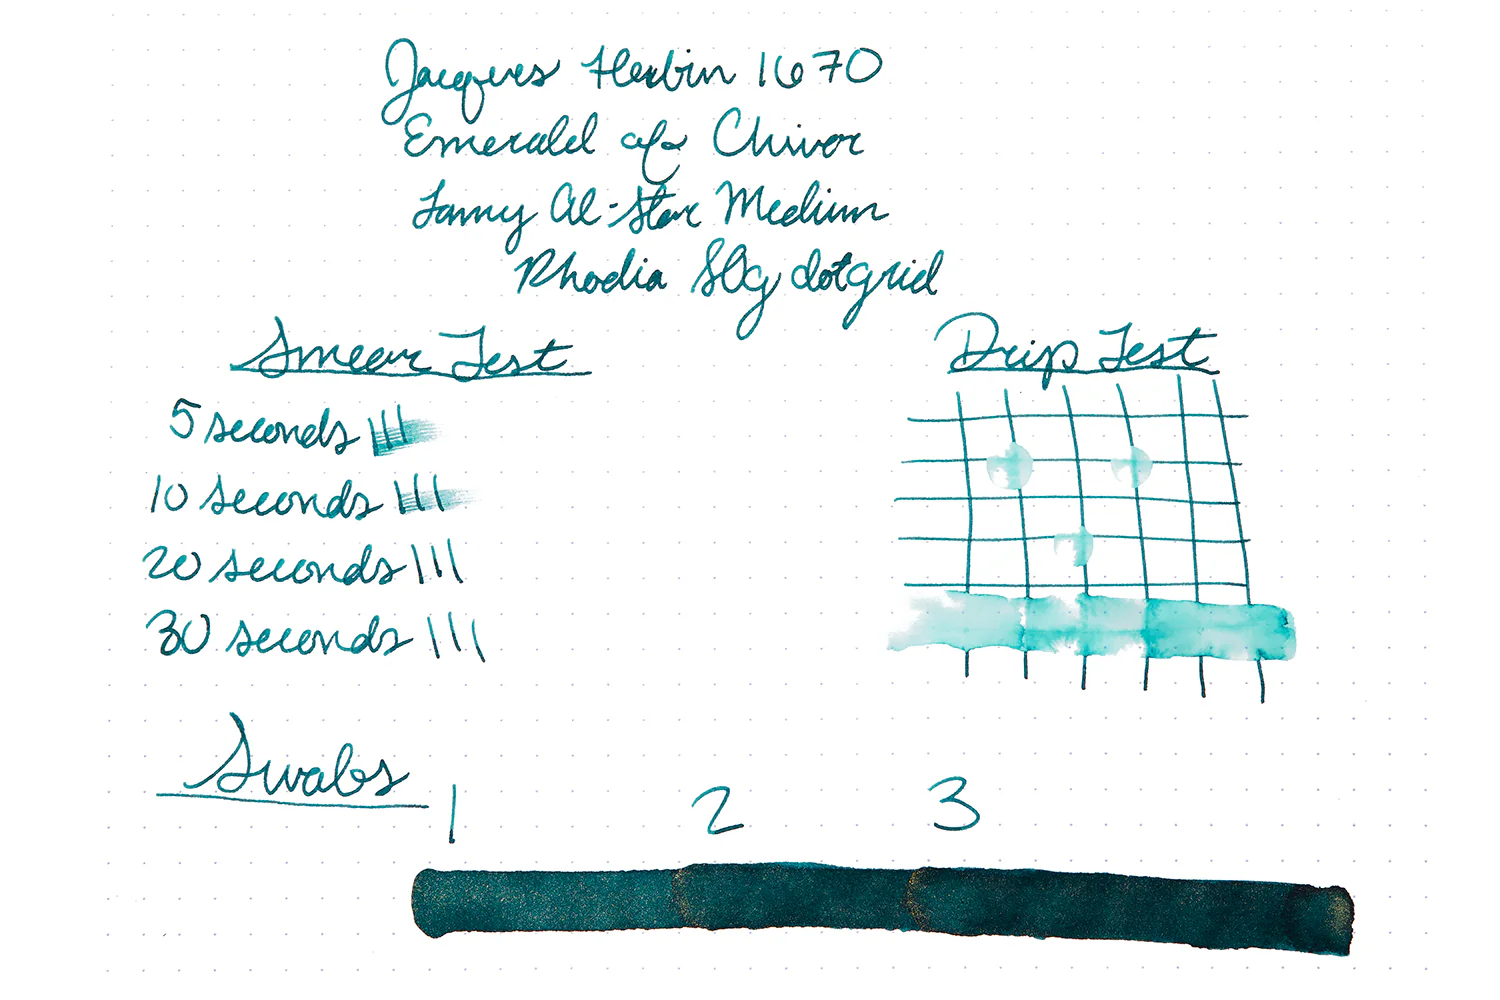 Jacques Herbin 1670
Emerald of Chivor
Lamy Al-Star Medium
Rhodia 80g dotgrid
Smear Test
5 seconds
10 seconds
20 seconds
30 seconds
Drip Test
Swabs
1 2 3